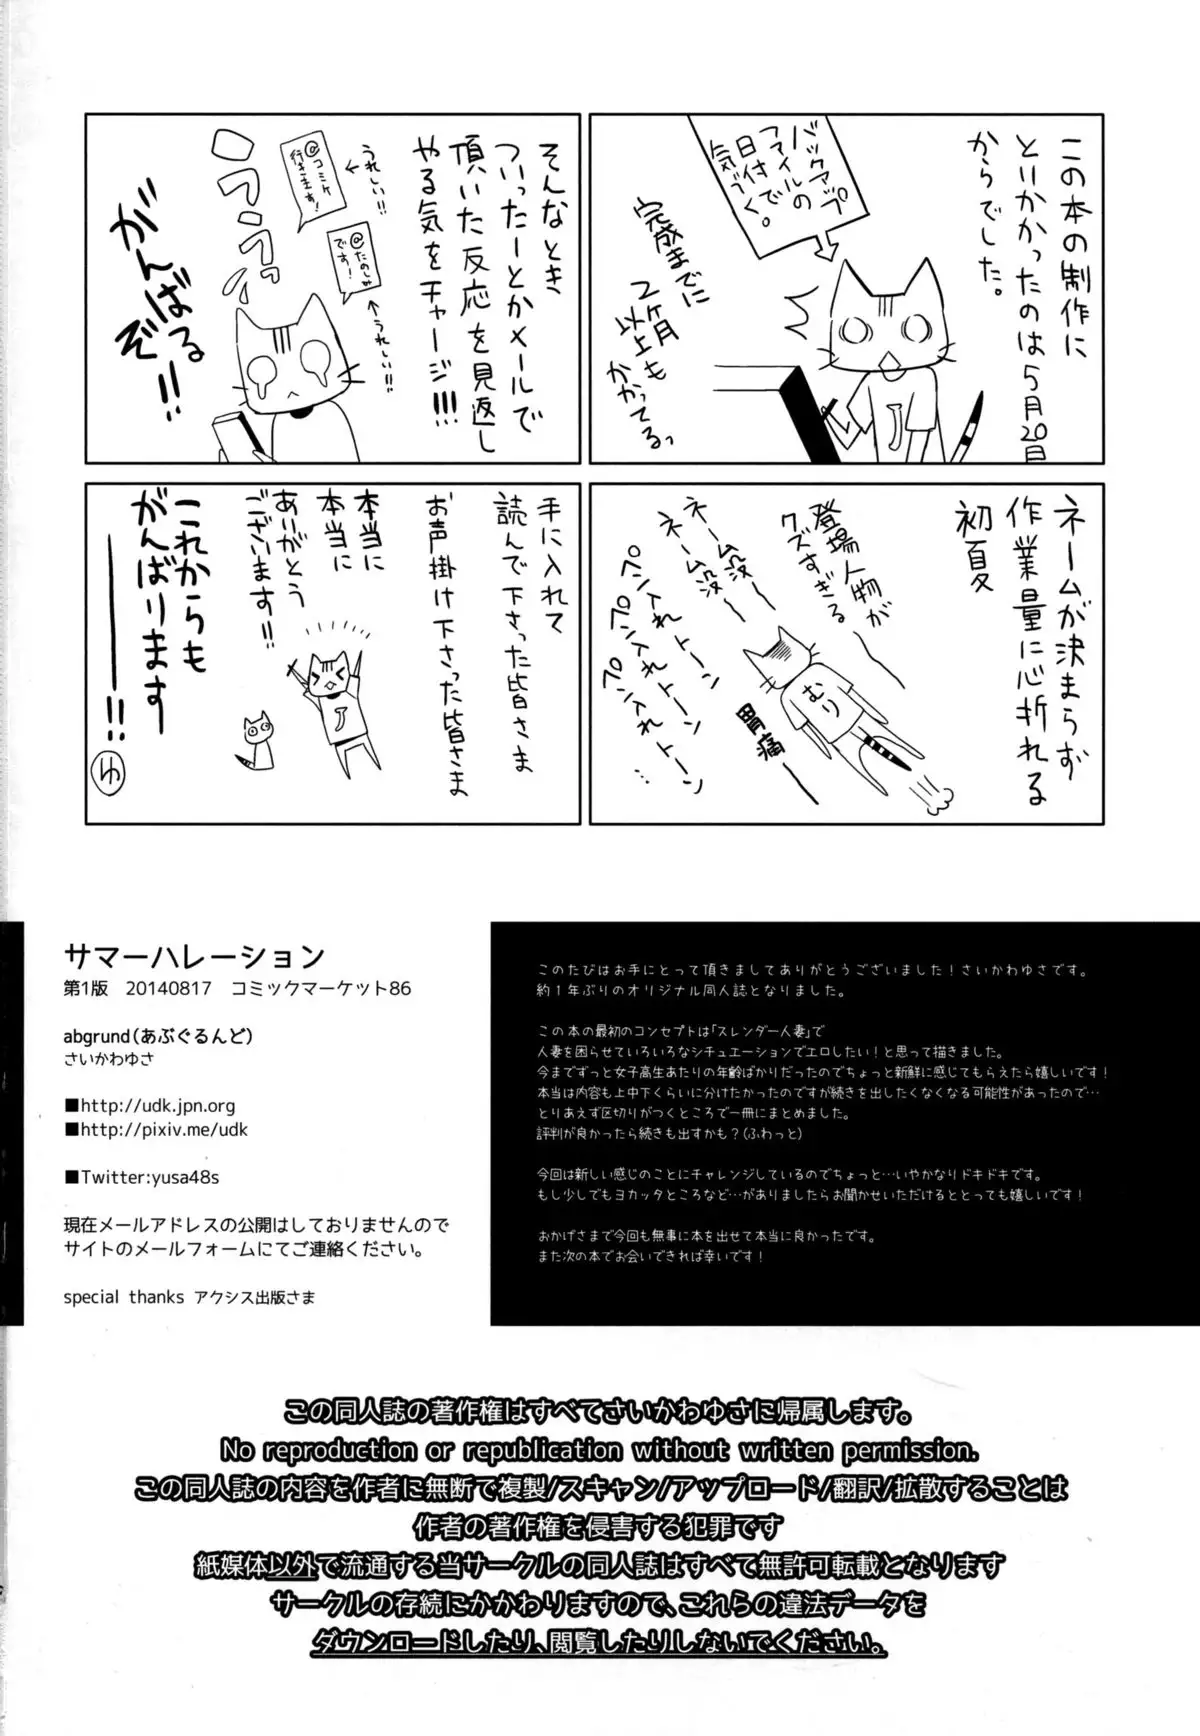 この本の制作に
とりかかったのは5月20日
からでした。
バックアップ
ファイルの
日付で
気づく。
完成までに
2ヶ月
以上も
かかってるっ
ネームが決まらず
作業量に心折れる
初夏
登場人物が
クズすぎる
ネーム没ー
ネーム没ー
ペン入れトーン
ペン入れトーン
むり
胃痛ー
そんなとき
ついったーとかメールで
頂いた反応を見返し
やる気をチャージ!!!
うれしい!!
@コミケ
行きます!
@たのしみ
です!
うれしい!!
がんばる
ぞ!!
手に入れて
読んで下さった皆さま
お声掛け下さった皆さま
本当に
本当に
ありがとう
ございます!!
これからも
がんばります
ー!!
ゆ
サマーハレーション
第1版 20140817 コミックマーケット86
abgrund(あぶぐるんど)
さいかわゆさ
■http://udk.jpn.org
■http://pixiv.me/udk
■Twitter:yusa48s
現在メールアドレスの公開はしておりませんので
サイトのメールフォームにてご連絡ください。
special thanks アクシス出版さま
このたびはお手にとって頂きましてありがとうございました!さいかわゆさです。
約1年ぶりのオリジナル同人誌となりました。
この本の最初のコンセプトは「スレンダー人妻」で
人妻を困らせていろいろなシチュエーションでエロしたい!と思って描きました。
今までずっと女子高生あたりの年齢ばかりだったのでちょっと新鮮に感じてもらえたら嬉しいです!
本当は内容も上中下くらいに分けたかったのですが続きを出したくなくなる可能性があったので…
とりあえず区切りがつくところで一冊にまとめました。
評判が良かったら続きも出すかも?(ふわっと)
今回は新しい感じのことにチャレンジしているのでちょっと…いやかなりドキドキです。
もし少しでもヨカッタところなど…がありましたらお聞かせいただけるととっても嬉しいです!
おかげさまで今回も無事に本を出せて本当に良かったです。
また次の本でお会いできれば幸いです!
この同人誌の著作権はすべてさいかわゆさに帰属します。
No reproduction or republication without written permission.
この同人誌の内容を作者に無断で複製/スキャン/アップロード/翻訳/拡散することは
作者の著作権を侵害する犯罪です
紙媒体以外で流通する当サークルの同人誌はすべて無許可転載となります
サークルの存続にかかわりますので、これらの違法データを
ダウンロードしたり、閲覧したりしないでください。